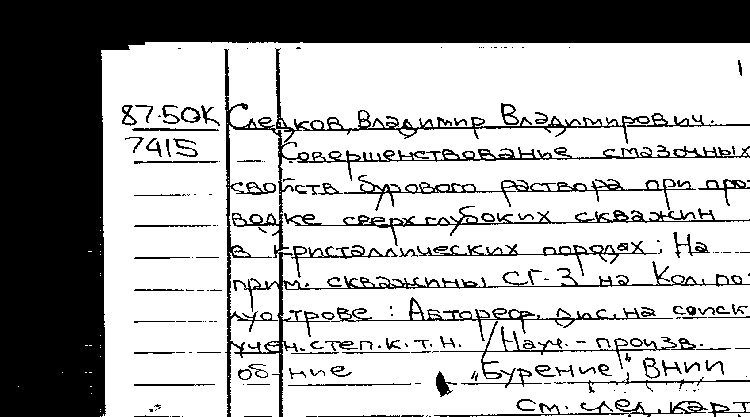 1
87-50К Следков, Владимир Владимирович.
7415 Совершенствование смазочных
свойств бурового раствора при про
водке сверхглубоких скважин
в кристаллических породах: На
прим. скважины СГ-3 на Кол. по
луострове : Автореф. дис. на соиск
учен. степ. к. т. н. / Науч.- произв.
об-ние "Бурение", ВНИИ
см. след. карт